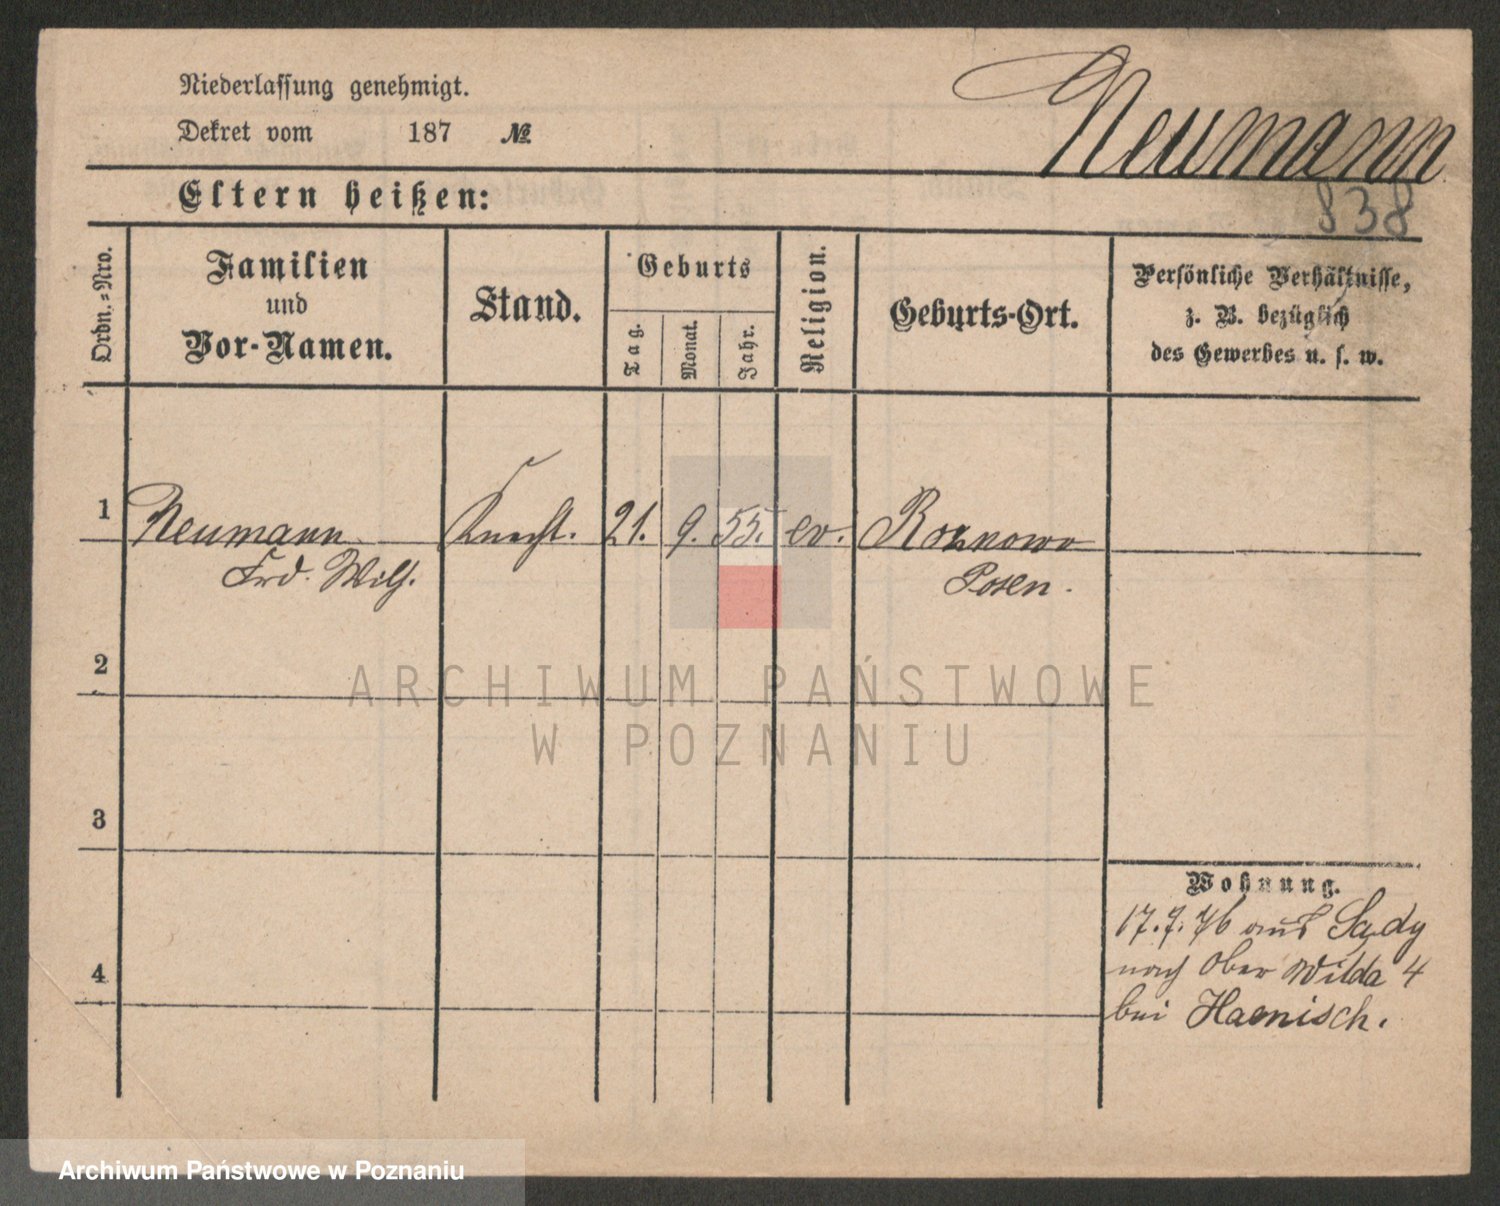 Niederlassung genehmigt.
Dekret vom 187 №
Neumann
838
Eltern heißen:
Ordn.-Nro.
Familien
und
Vor-Namen.
Stand.
Geburts
Tag.
Monat.
Jahr.
Religion.
Geburts-Ort.
Persönliche Verhältnisse,
z. B. bezüglich
des Gewerbes u. s. w.
1 Neumann Knecht. 21. 9. 55. ev. Roznowo
Frd. Wilh. Posen.
2
ARCHIWUM PAŃSTWOWE
W POZNANIU
3
Wohnung.
17.7.76 aus Sady
nach Ober Wilda 4
4
bei Haenisch.
Archiwum Państwowe w Poznaniu